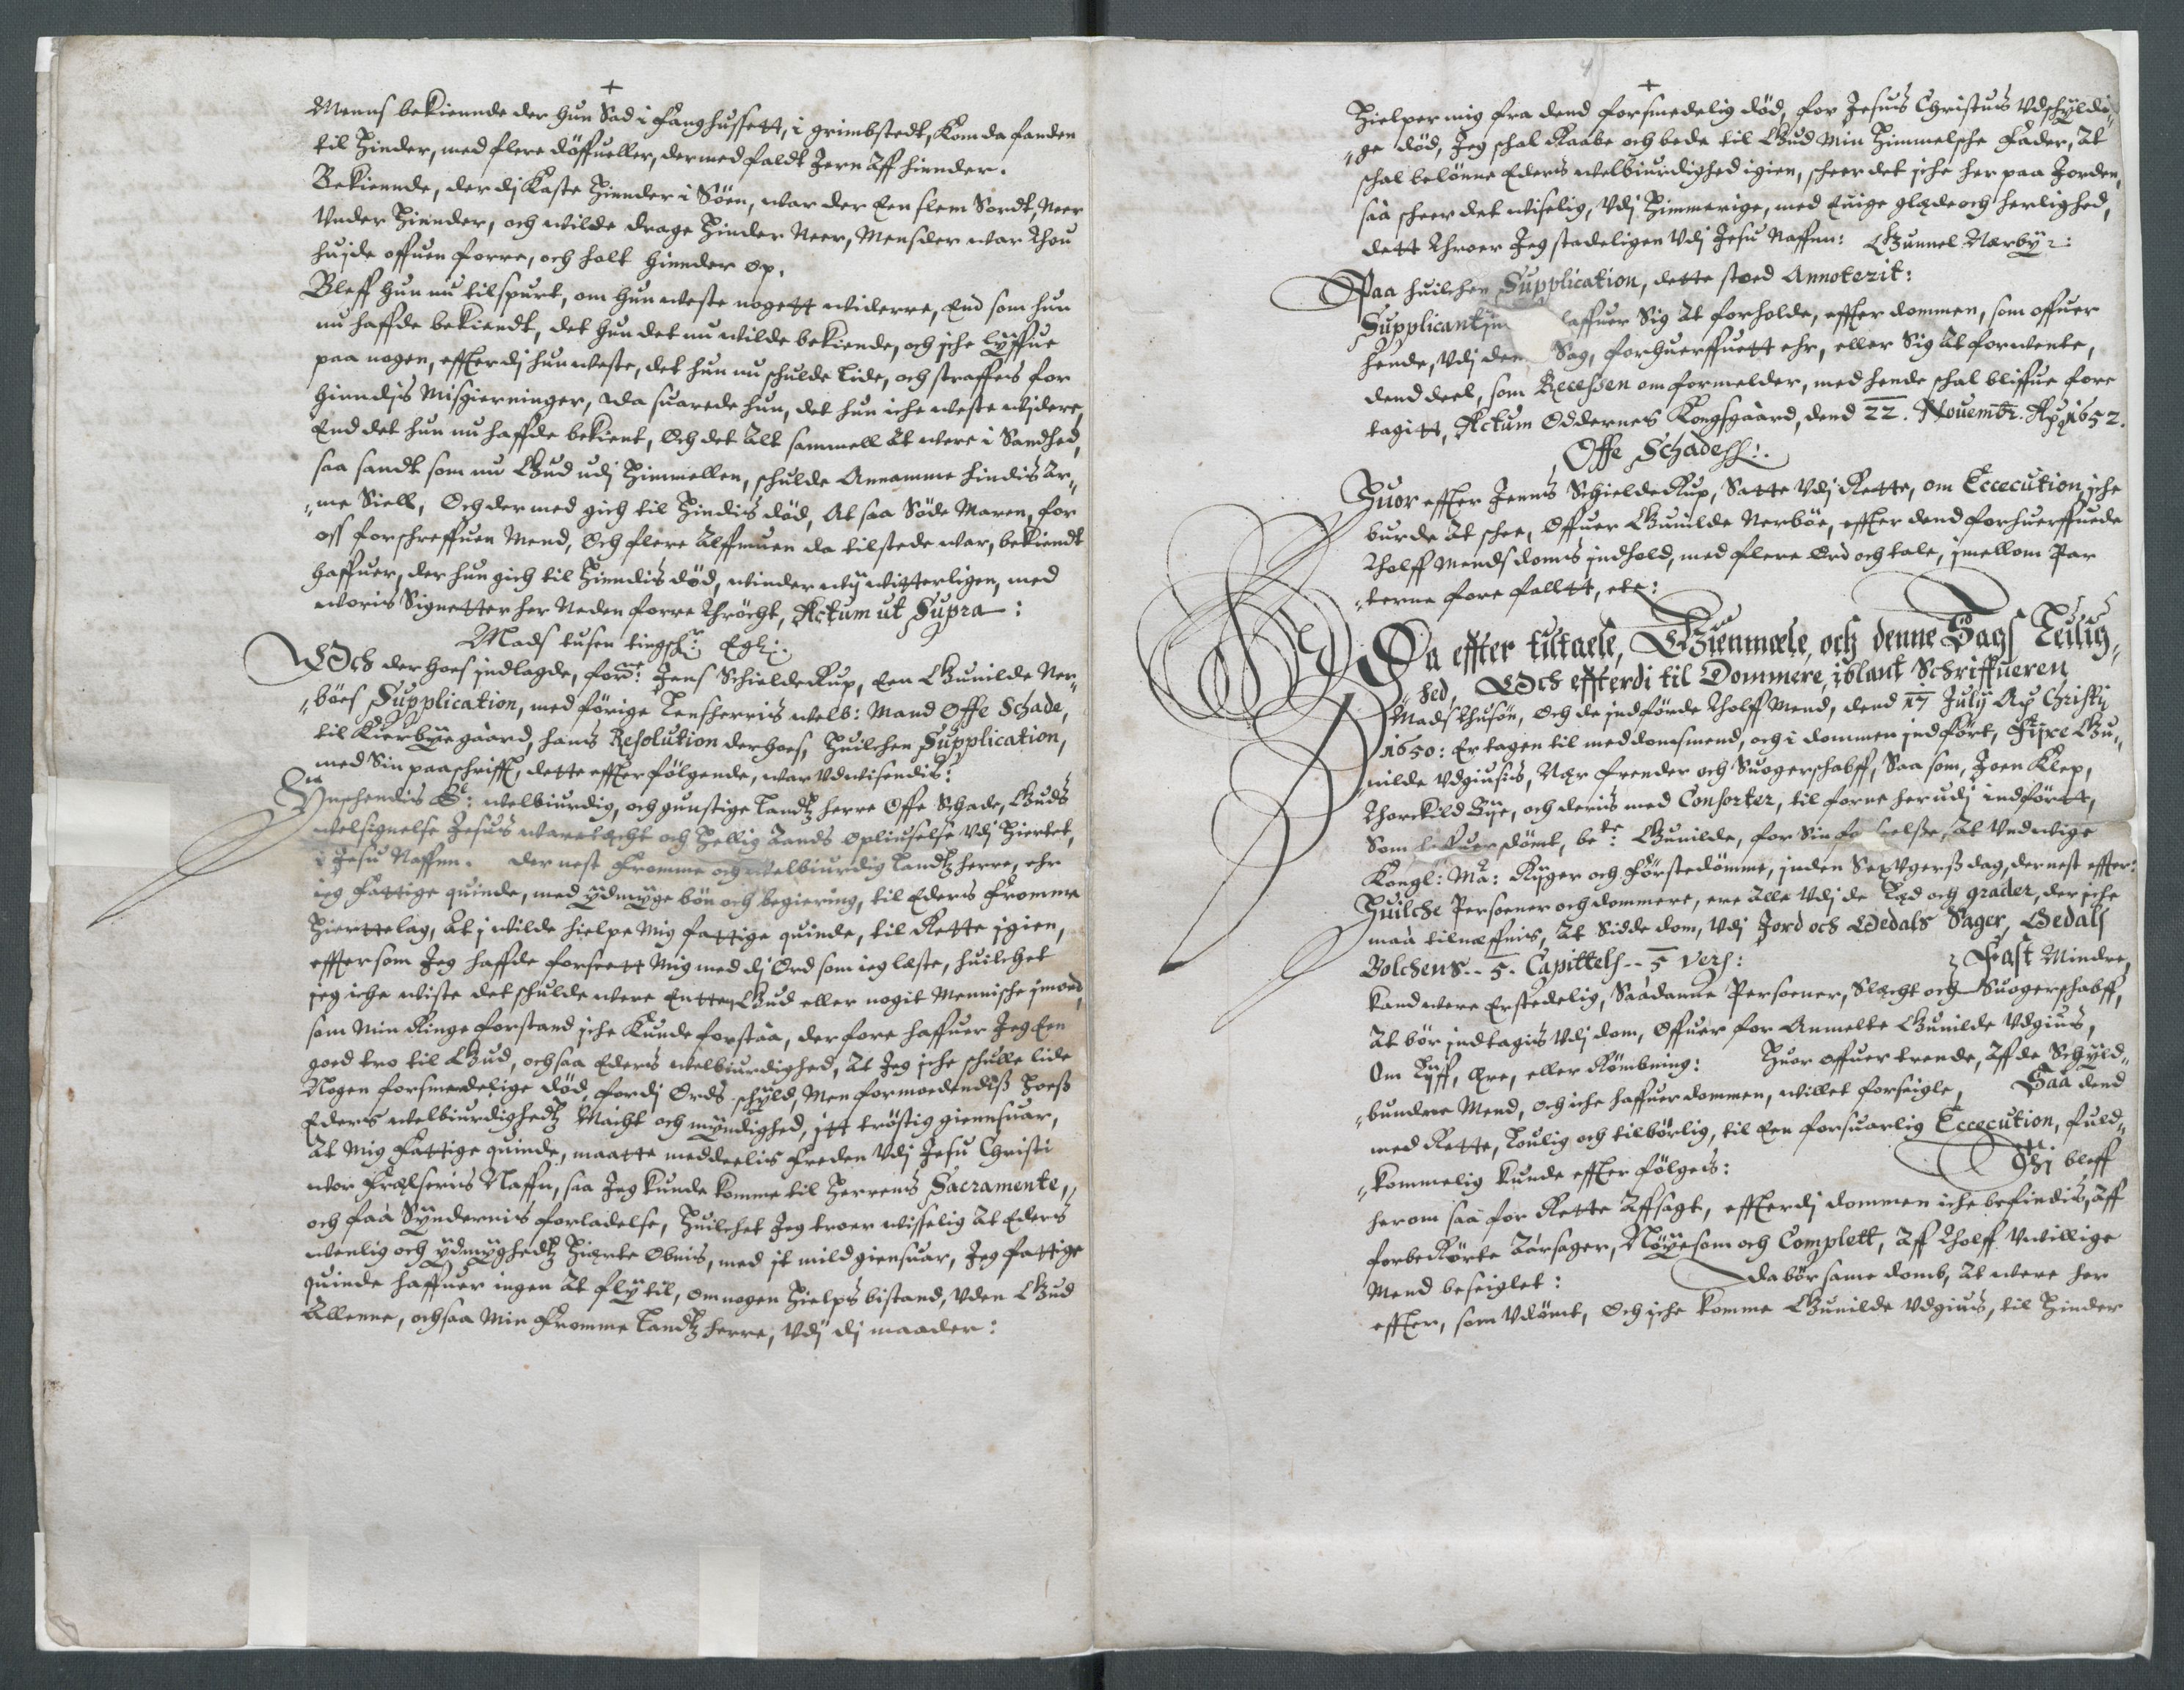 Menns bekiennde der hun Sad i fanghussett, i Grimbstedt, kom da fanden
til Hinder, med flere döffueller, der med faldt Jern aff hinder.
Bekiennde, der dj kaste Hinnder i Söen, war der Een slem Sordt, Neer
Vnder Hinnder, och wilde drage Hinder Neer, Mens der war thou
huide offuen forre, och holt hinnder op.
Bleff hun nu tilspurt, om hun weste nogett widerre, End som hun
nu haffde bekiendt, det hun det nu wilde bekiende, och iche lyffue
paa nogen, effterdj hun weste, det hun nu schulde Lide, och straffes for
hindis Misgierninger, da suarede hun, det hun iche weste widere,
End det hun nu haffde bekient, Och det alt sammell at were i Sandhed,
saa sandt som nu Gud udj Himmellen, schulde Annamme hindis ar„
„me Siell, Och der med gich til Hindis död, At saa Söde Maren, for
oss forschreffuen Mend, Och flere alffmuen da tilstede war, bekiendt
haffuer, der hun gich til Hinndis död, winder wij witterligen, med
woris Signetter her Neden forre thröcht, Actum ut Supra:
Mads tusen tingschr: Eghz:
Och der hoes indlagde, forne: Jens Schielderup, Een Gunilde Ner„
„böes Supplication, med förige Lensherris welb: Mand Offe Schade,
til Kierbyegaard, hans Resolution der hoes, Huilchen Supplication,
med Sin paaschrifft, dette effter fölgende, war Vdwisendis:
Ynschendis E: welbiurdig, och gunstige Landtz herre Offe Schade, Guds
welsignelse Jesuis waretecht och Hellig Aands opliuselse Vdj Hiertet,
i Jesu Naffen. Der nest Fromme och welbiurdig Landtz herre, ehr
ieg Fattige quinde, med ydmyge bön och begiering, til Eders Fromme
Hierttelag, At j wilde hielpe Mig fattige quinde, til Rette igien,
efftersom Jeg haffde forseett Mig med dj Ord som ieg laste, huilchet
ieg iche wiste det schulde were Entten Gud eller nogit Menniske imoed,
som Min Ringe forstand iche kunde forstaa, der fore haffuer Jeg Een
goed tro til Gud, och saa Eders welbiurdighed, At Jeg iche schulle lide
Nogen forsmedelige död, fordj Ords schyld, Men formoedendiss Hoess
Eders welbiurdighedtz Macht och myndighed, itt tröstig giensuar,
At Mig Fattige quinde, maatte meddeelis Freden Vdj Jesu Christi
wor Frelseris Naffn, saa Jeg kunde komme til Herrens Sacramente„
och faa Syndernis forladelse, Huilchet Jeg troer wisselig at Eders
wenlig och ydmyghedtz Hierte Obnis, med it mild giensuar, Jeg fattige
quinde haffuer ingen At fly til, om nogen Hielps bistand, Vden Gud
Allenne, och saa Min Fromme Landtz herre, Vdj dj maader:
Hielper mig fra dend forsmedelig död, for Jesuis Christuis Vdschyldi„
„ge död, Jeg schal Raabe och bede til Gud Min Himmelsche Fader, At
schal belönne Eders welbiurdighed igien, scheer det iche her paa Jorden,
saa scheer det wiselig, Vdj Himmerige, med Euige glæde och herlighed,
dett throer Jeg stadeligen Vdj Jesu Naffen: Gunnel Nærby:
Paa huilchen Supplication, dette stoed Annoterit:
Supplicantin haffuer Sig at forholde, effter dommen, som offuer
hende, Vdj den Sag, forhuerffuett ehr, eller Sig at forwente,
dend deel, som Recessen om formelder, med hende schal bliffue fore
tagitt, Actum Oddernes Kongsgaard, dend 22. Nouembr. Ao 1652.
Offe Schade
Huor effter Jenns Schielderup, Satte Vdj Rette, om Eccecution iche
burde at schee, Offuer Gunilde Nerböe, effter dend forhuerffuede
tholff Mends doms indhold, med flere Ord och tale, imellom Par
„terne fore falltt, etc:
Da effter tiltaele, Gienmæle, och denne Sags Leilig„
„hed, Och effterdi til Dommere, iblant Schriffueren
Mads thusön, Och de indförde tholff Mend, dend 17 July Ao Christi
1650: Er tagen til meddomsmend, och i dommen indfört, Fire Gu„
nilde Vdgiusis, Nær frender och Suogerschabff, Saa som, Joen Klep,
Thorkild Bye, och deris med Consorter, til forne her udj indförtt,
Som haffuer dömt, bete: Gunilde, for Sin at Vndwige
Kongl: Ma: Riger och Förstedömme, inden Sex Vgerss dag, dernest effter:
Huilche Persoener och dommere, ere alle Vdj de Led och grader, der iche
maa tilneffnis, At Sidde dom, Vdj Jord och Oedals Sager, Oedals
Bolchens -- 5. Capittels -- 5 Vers: Fast Mindre
kand were Erstedelig, Saadanne Persoener, Slecht och Suogerschabff,
At bör indtagis Vdj dom, Offuer for Anmelte Gunilde Vdgius,
Om Lyff, Ære, eller Römbning: Huor offuer trende, aff de Schyld„
„bundne Mend, och iche haffuer dommen, willet forseigle, Saa dend
med Rette, Loulig och tilbörlig, til Een forsuarlig Eccecution, fuld„
„kommelig kunde effter fölgeis: Thj bleff
her om saa for Rette Affsagt, effterdj dommen iche befindis, aff
forberörte Aarsager, Nöyesom och Complett, aff tholff Vwillige
Mend beseiglet: Da bör same domb, at were her
effter, som Vdömt, Och iche komme Gunilde Vdgius, til Hinder